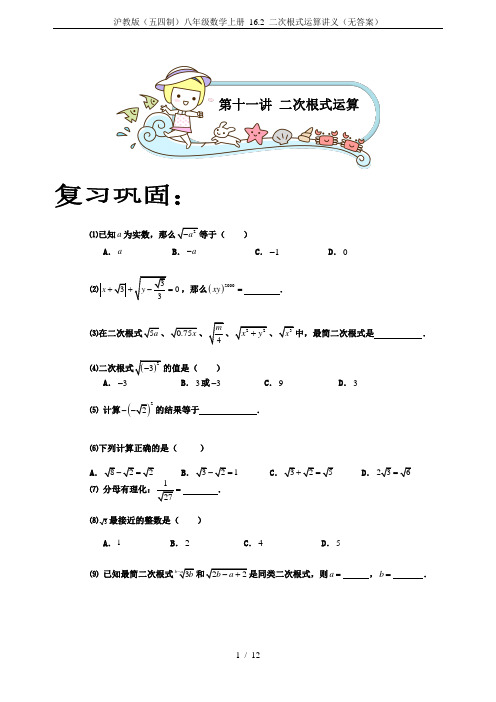 沪教版（五四制）八年级数学上册 16.2 二次根式运算讲义（无答案）
第十一讲 二次根式运算
复习巩固：
⑴已知 a 为实数，那么√(-a²)等于（ ）
A．a B．-a C．-1 D．0
⑵|x+√3|+√(y-√3/3)=0，那么(xy)²⁰⁰⁰= ．
⑶在二次根式√(5a)、√(0.75x)、√(m/4)、√(x²+y²)、√(x³)中，最简二次根式是 ．
⑷二次根式√((-3)²) 的值是（ ）
A．-3 B．3或-3 C．9 D．3
⑸ 计算-(-√2)²的结果等于 ．
⑹下列计算正确的是（ ）
A．√8-√2=√2 B．√3-√2=1 C．√3+√2=√5 D．2√3=√6
⑺ 分母有理化：1/√27= ．
最接近的整数是（ ）
A．1 B．2 C．4 D．5
⑼ 已知最简二次根式 和√(2b-a+2)是同类二次根式，则 a= ，b= ．
1 / 12